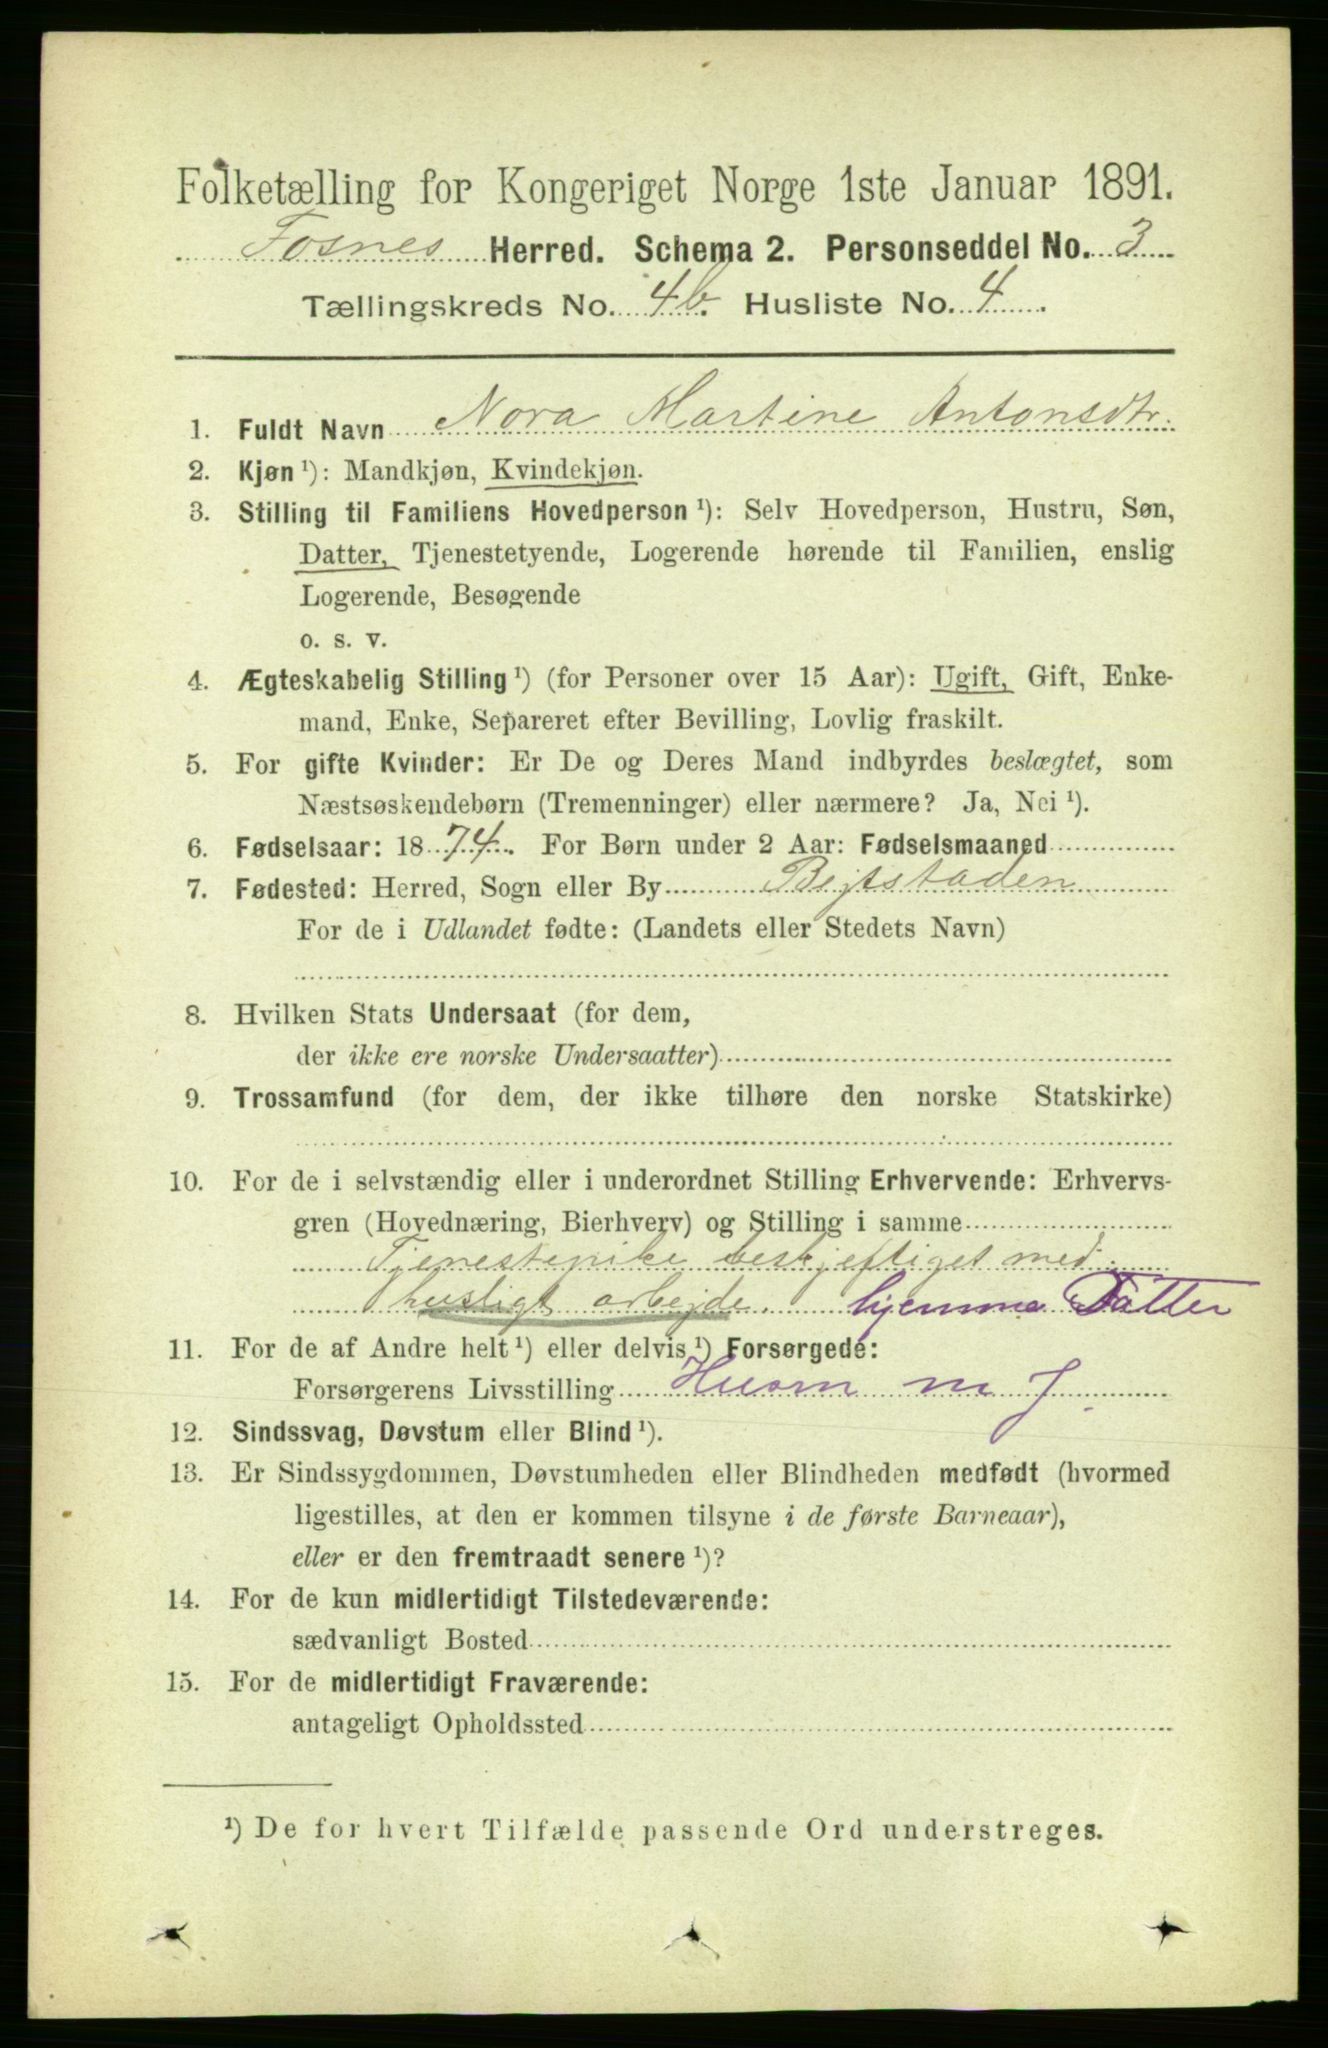 Folketælling for Kongeriget Norge 1ste Januar 1891.
Fosnes Herred. Schema 2. Personseddel No. 3
Tællingskreds No. 4b. Husliste No. 4
1. Fuldt Navn Nora Martine Antonsdtr.
2. Kjøn ¹): Mandkjøn, Kvindekjøn.
3. Stilling til Familiens Hovedperson ¹): Selv Hovedperson, Hustru, Søn,
Datter, Tjenestetyende, Logerende hørende til Familien, enslig
Logerende, Besøgende
o. s. v.
4. Ægteskabelig Stilling ¹) (for Personer over 15 Aar): Ugift, Gift, Enke-
mand, Enke, Separeret efter Bevilling, Lovlig fraskilt.
5. For gifte Kvinder: Er De og Deres Mand indbyrdes beslægtet, som
Næstsøskendebørn (Tremenninger) eller nærmere? Ja, Nei ¹).
6. Fødselsaar: 1874. For Børn under 2 Aar: Fødselsmaaned
7. Fødested: Herred, Sogn eller By Bejtstaden
For de i Udlandet fødte: (Landets eller Stedets Navn)
8. Hvilken Stats Undersaat (for dem,
der ikke ere norske Undersaatter)
9. Trossamfund (for dem, der ikke tilhøre den norske Statskirke)
10. For de i selvstændig eller i underordnet Stilling Erhvervende: Erhvervs-
gren (Hovednæring, Bierhverv) og Stilling i samme
Tjenestepike beskjeftiget med
husligt arbejde. hjemme Datter
11. For de af Andre helt ¹) eller delvis ¹) Forsørgede:
Forsørgerens Livsstilling Husm m J
12. Sindssvag, Døvstum eller Blind ¹).
13. Er Sindssygdommen, Døvstumheden eller Blindheden medfødt (hvormed
ligestilles, at den er kommen tilsyne i de første Barneaar),
eller er den fremtraadt senere ¹)?
14. For de kun midlertidigt Tilstedeværende:
sædvanligt Bosted
15. For de midlertidigt Fraværende:
antageligt Opholdssted
¹) De for hvert Tilfælde passende Ord understreges.